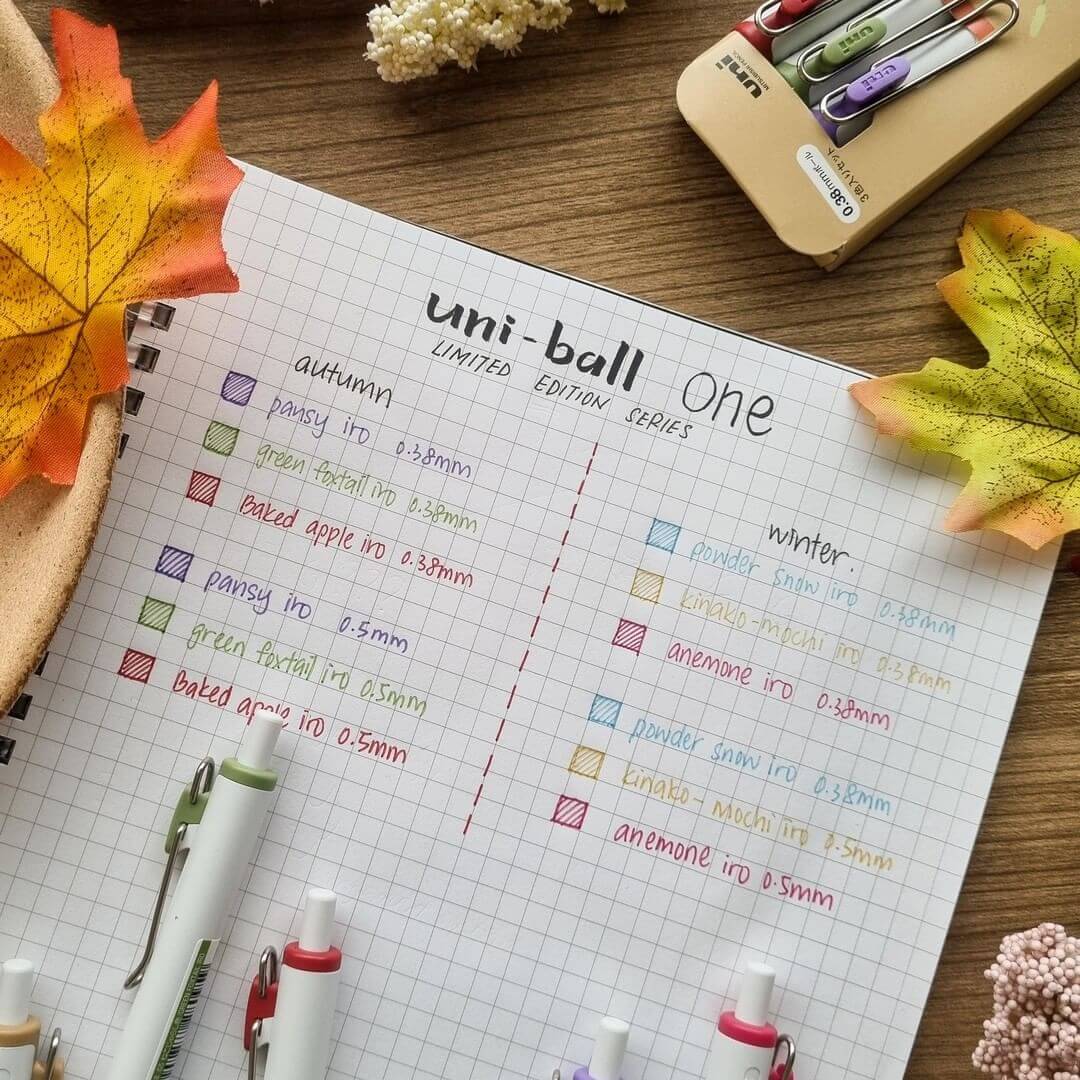 uni
MITSUBISHI PENCIL
uni
uni
0.38mmボール
3色入りセット
uni-ball One
LIMITED EDITION SERIES
autumn
pansy iro 0.38mm
green foxtail iro 0.38mm
Baked apple iro 0.38mm
pansy iro 0.5mm
green foxtail iro 0.5mm
Baked apple iro 0.5mm
winter.
powder snow iro 0.38mm
kinako-mochi iro 0.38mm
anemone iro 0.38mm
powder snow iro 0.38mm
kinako-mochi iro 0.5mm
anemone iro 0.5mm